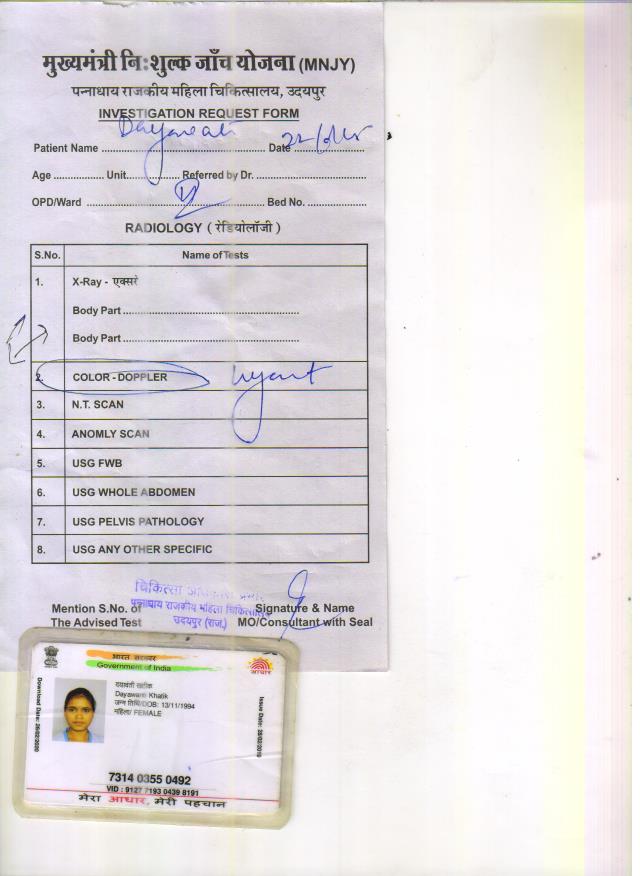 मुख्यमंत्री निःशुल्क जाँच योजना (MNJY)
पन्नाधाय राजकीय महिला चिकित्सालय, उदयपुर
INVESTIGATION REQUEST FORM
Patient Name Dayawati Date
Age Unit Referred by Dr.
OPD/Ward Bed No.
RADIOLOGY ( रेडियोलॉजी )
S.No. Name of Tests
1. X-Ray - एक्सरे
Body Part
Body Part
2. COLOR - DOPPLER urgent
3. N.T. SCAN
4. ANOMLY SCAN
5. USG FWB
6. USG WHOLE ABDOMEN
7. USG PELVIS PATHOLOGY
8. USG ANY OTHER SPECIFIC
चिकित्सा
पन्नाधाय राजकीय महिला चिकित्सालय
उदयपुर (राज.)
Mention S.No. of Signature & Name
The Advised Test MO/Consultant with Seal
भारत सरकार
Government of India
आधार
दयावंती खटीक
Dayawanti Khatik
जन्म तिथि/DOB: 13/11/1994
महिला/ FEMALE
7314 0355 0492
VID : 9127 7193 0439 8191
मेरा आधार, मेरी पहचान